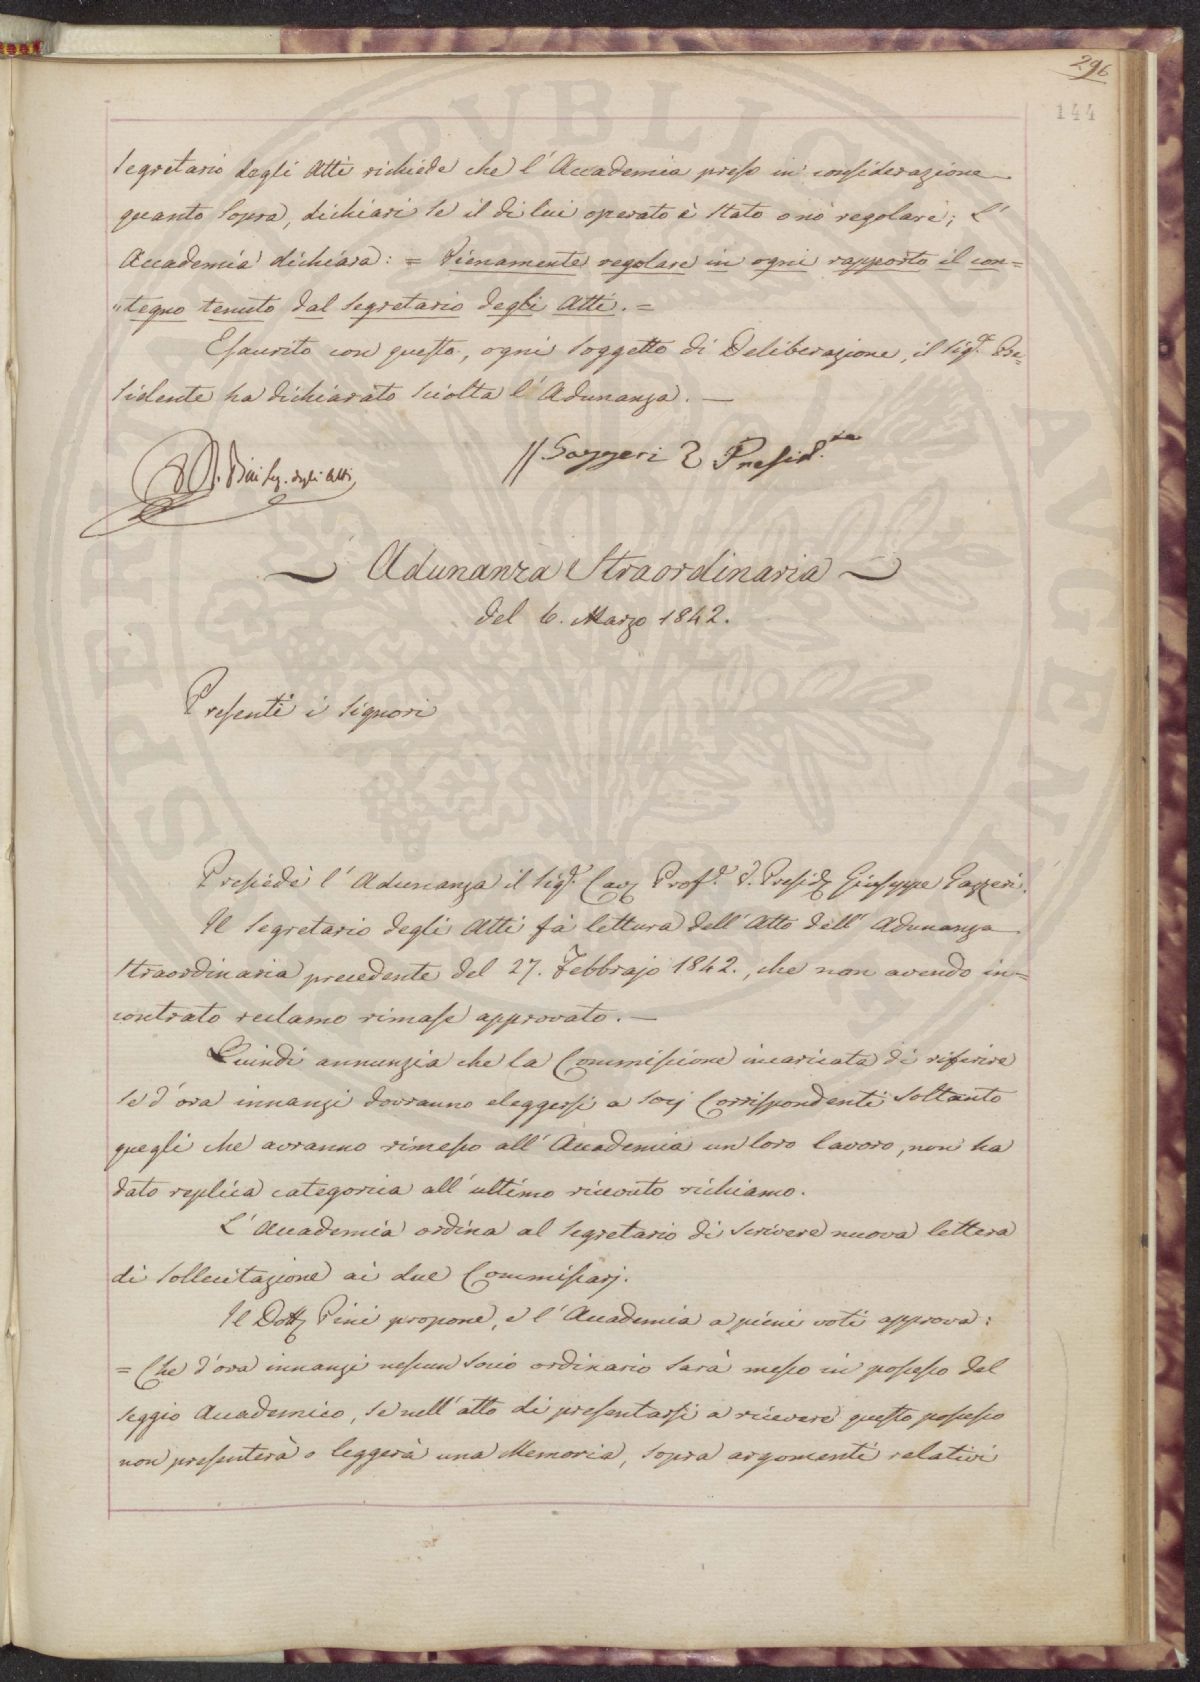 296
144
Segretario degli Atti richiede che l'Accademia preso in considerazione
quanto Sopra, dichiari se il di lui operato è stato o nò regolare; L'
Accademia dichiara: = Pienamente regolare in ogni rapporto il con=
"tegno tenuto dal Segretario degli Atti. =
Esaurito con questo, ogni Soggetto di Deliberazione, il Sigr. Pre=
sidente ha dichiarato Sciolta l'Adunanza. —
Pini Seg. degli Atti
Gazzeri Presid.te
Adunanza Straordinaria
del 6. Marzo 1842.
Presenti i Signori
Presiede l'Adunanza il Sigr. Cav. Profr. Presid. Giuseppe Gazzeri.
Il Segretario degli Atti fà lettura dell'Atto dell'Adunanza
Straordinaria precedente del 27. Febbrajo 1842., che non avendo in=
contrato reclamo rimase approvato. —
Quindi annunzia che la Commissione incaricata di riferire
se d'ora innanzi dovranno eleggersi a Socj Corrispondenti Soltanto
quegli che avranno rimesso all'Accademia un loro lavoro, non ha
dato replica categorica all'ultimo ricevuto richiamo.
L'Accademia ordina al Segretario di Scrivere nuova lettera
di Sollecitazione ai due Commissarj.
Il Dott. Pini propone, e l'Accademia a pieni voti approva:
= Che d'ora innanzi nessun Socio ordinario Sarà messo in possesso del
Seggio Accademico, Se nell'atto di presentarsi a ricevere questo possesso
non presenterà o leggerà una Memoria, Sopra argomenti relativi
PVBLICAE
AVGENDAE
SPEI